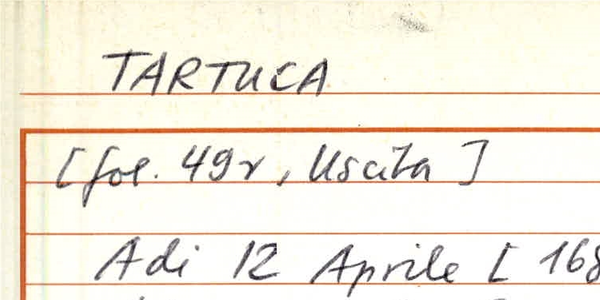 TARTUCA
[fol. 49r, Uscita]
Adi 12 Aprile [ 168